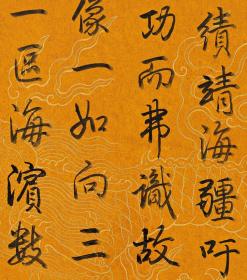 績靖海疆吁
功而弗識故
像一如向三
一區海濱數